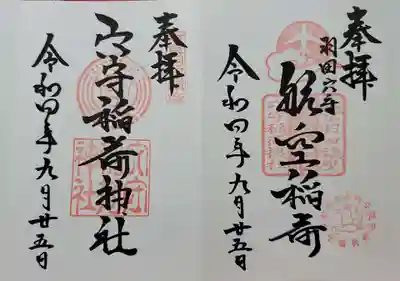 奉拝
羽田穴守
航空稲荷
令和四年九月廿五日
奉拝
穴守稲荷神社
令和四年九月廿五日